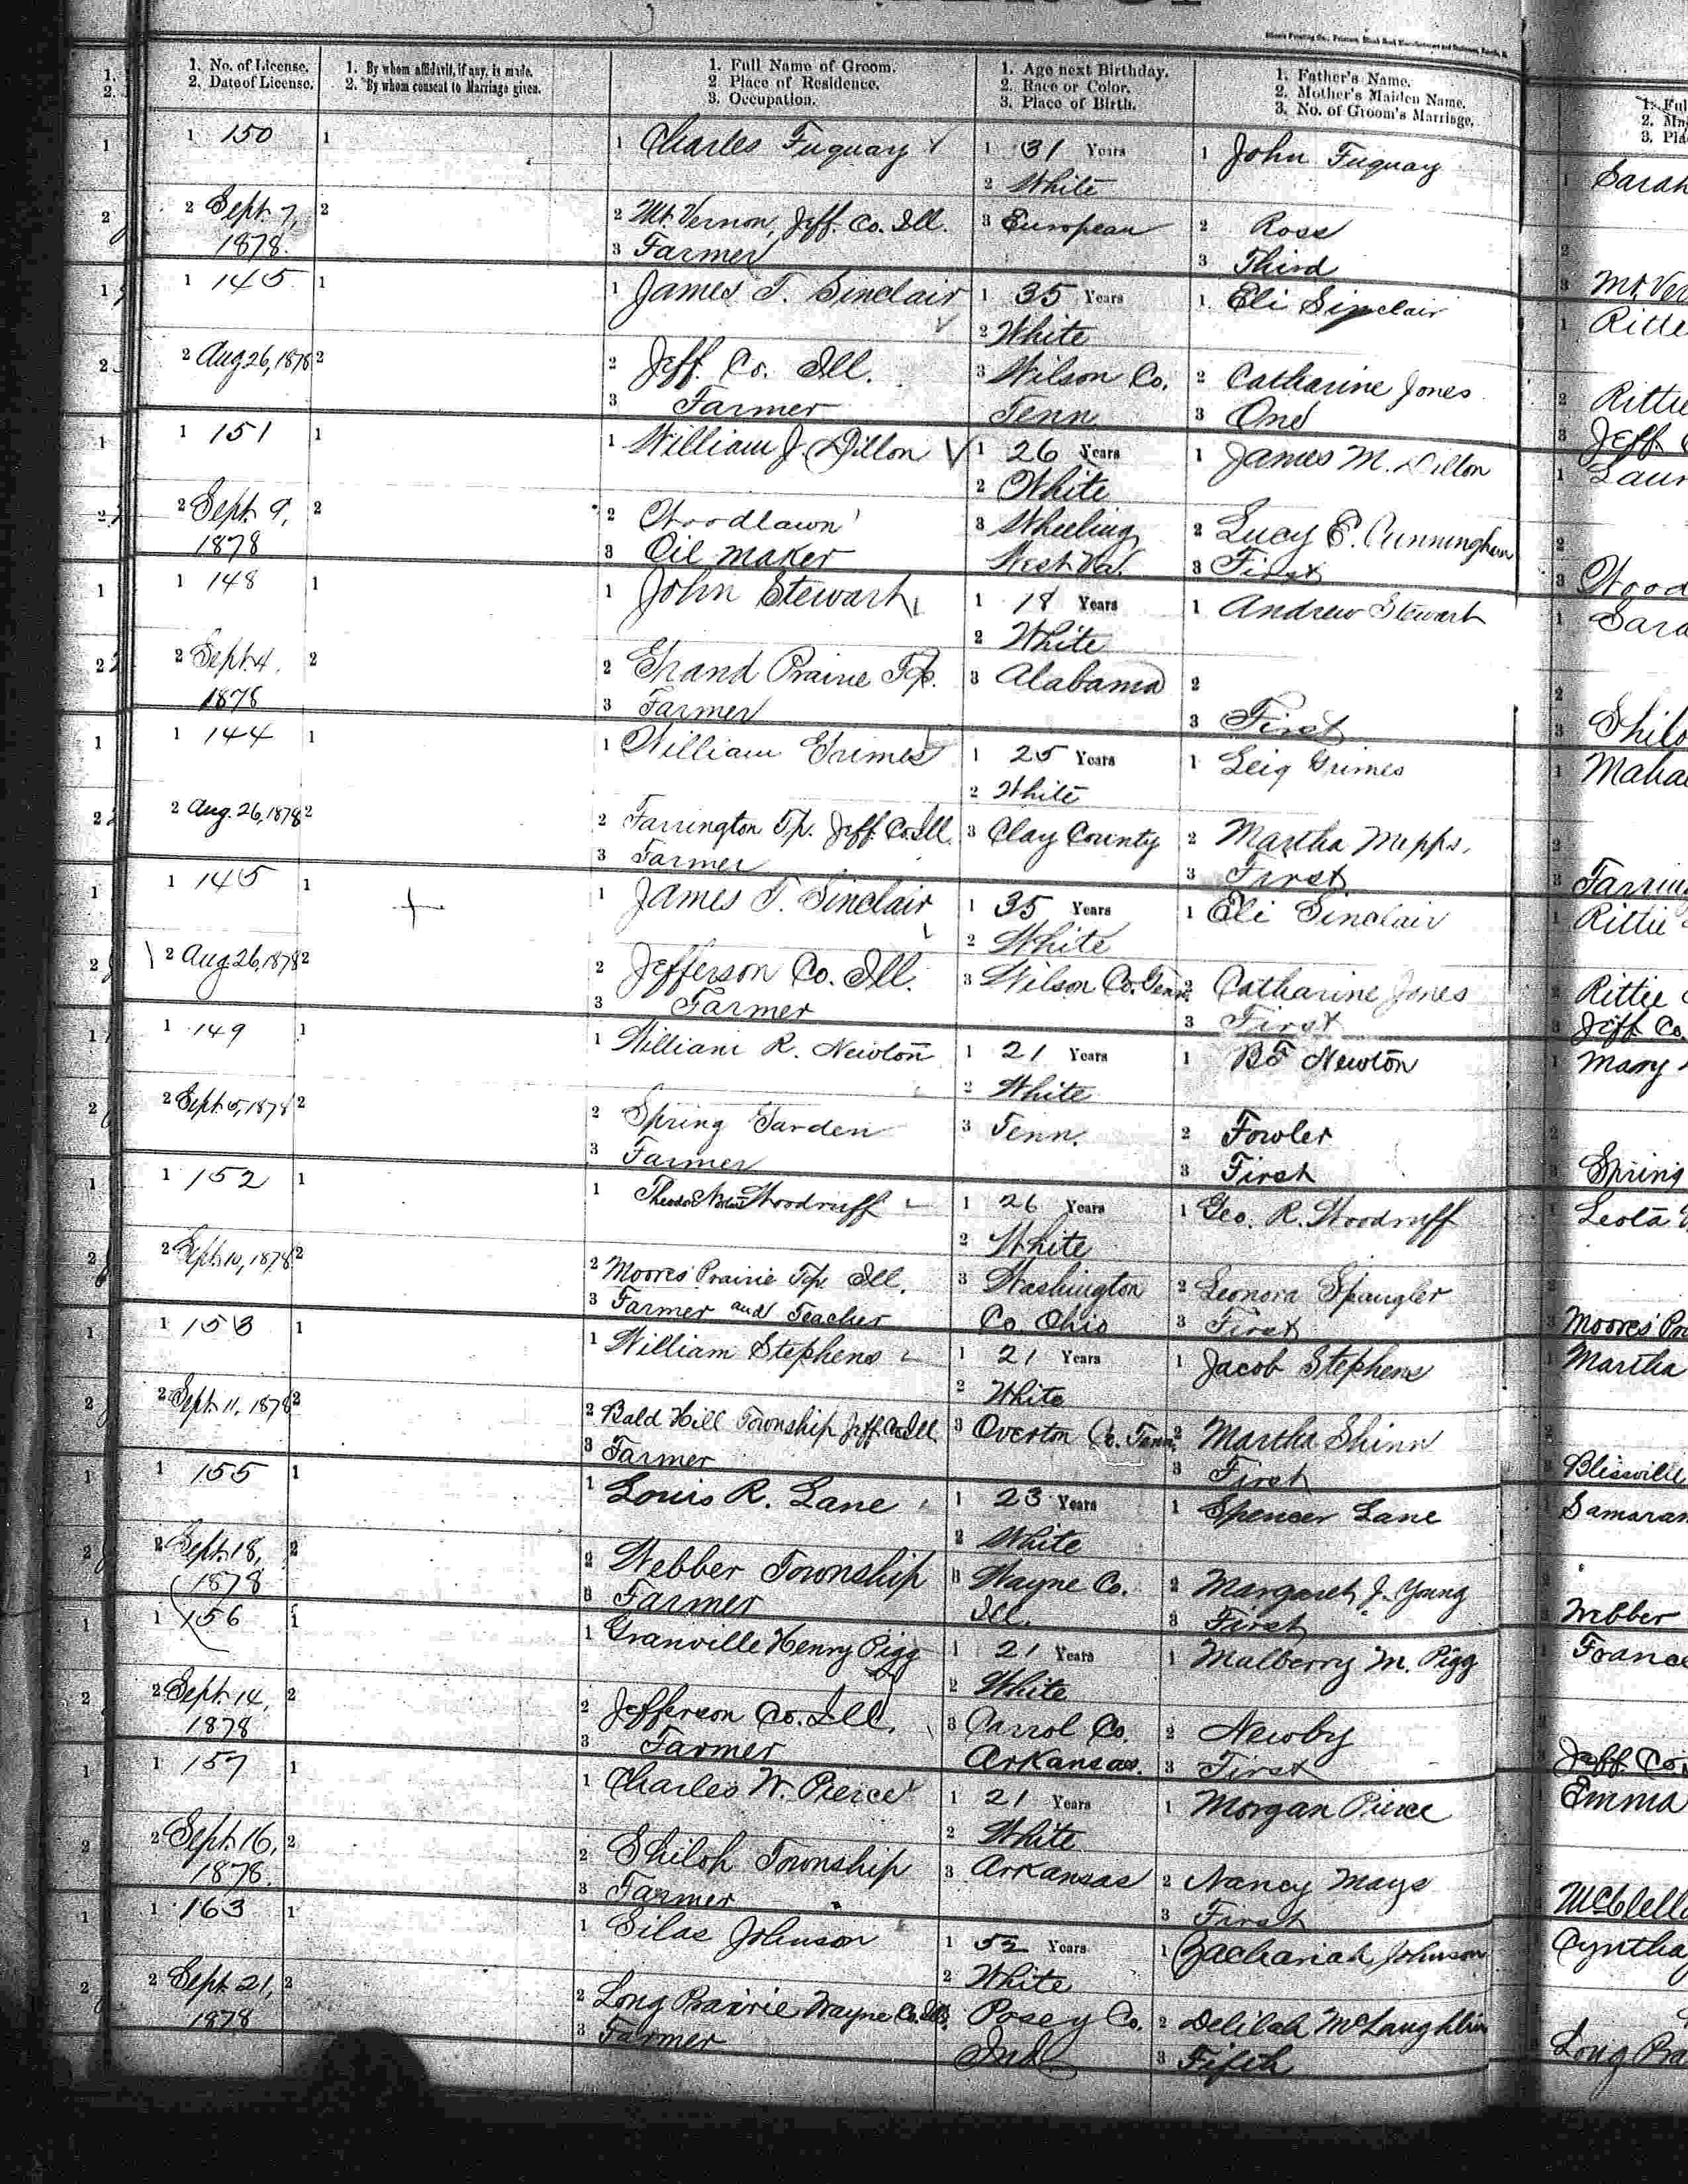 1. No. of License.
2. Date of License.
1. By whom affidavit, if any, is made.
2. By whom consent to Marriage given.
1. Full Name of Groom.
2. Place of Residence.
3. Occupation.
1. Age next Birthday.
2. Race or Color.
3. Place of Birth.
1. Father's Name.
2. Mother's Maiden Name.
3. No. of Groom's Marriage.
1 150 1 1 Charles Fuquay 1 31 Years 1 John Fuquay Sarah
2 White
2 Sept. 7, 2 2 Mt. Vernon, Jeff. Co. Ill. 3 European 2 Ross
1878. 3 Farmer 3 Third Mt. Ver
1 145 1 1 James T. Sinclair 1 35 Years 1 Eli Sinclair Ritte
2 White
2 Aug 26, 1878 2 2 Jeff. Co. Ill. 3 Wilson Co. 2 Catharine Jones Rittie
3 Farmer Tenn 3 One Jeff.
1 151 1 1 William J. Dillon 1 26 Years 1 James M. Dillon Laur
2 White
2 Sept. 9, 2 2 Woodlawn 3 Wheeling 2 Lucy E. Cunningham
1878 3 Oil maker West Va. 3 First Wood
1 148 1 1 John Stewart 1 18 Years 1 Andrew Stewart Sara
2 White
2 Sept. 4, 2 2 Grand Prairie Tp. 3 Alabama 2
1878 3 Farmer 3 First Shilo
1 144 1 1 William Grimes 1 25 Years 1 Leig Grimes Maha
2 White
2 Aug. 26, 1878 2 2 Farrington Tp. Jeff. Co. Ill. 3 Clay County 2 Martha Mepps.
3 Farmer 3 First Farring
1 145 1 1 James T. Sinclair 1 35 Years 1 Eli Sinclair Rittie
2 White
2 Aug. 26, 1878 2 2 Jefferson Co. Ill. 3 Wilson Co. Tenn. 2 Catharine Jones Rittie
3 Farmer 3 First Jeff Co.
1 149 1 1 William R. Newton 1 21 Years 1 B F Newton Mary
2 White
2 Sept. 5, 1878 2 2 Spring Garden 3 Tenn. 2 Fowler
3 Farmer 3 First Spring
1 152 1 1 Theodore Woodruff 1 26 Years 1 Geo. R. Woodruff Leota
2 White
2 Sept. 10, 1878 2 2 Moores Prairie Tp. Ill. 3 Washington 2 Leonora Spangler
3 Farmer and Teacher Co. Ohio 3 First Moores Pra
1 153 1 1 William Stephens 1 21 Years 1 Jacob Stephens Martha
2 White
2 Sept. 11, 1878 2 2 Bald Hill Township Jeff. Co. Ill. 3 Overton Co. Tenn. 2 Martha Shinn
3 Farmer 3 First Blissville
1 155 1 1 Louis R. Lane 1 23 Years 1 Spencer Lane Samaran
2 White
2 Sept. 18, 2 2 Webber Township 3 Wayne Co. 2 Margaret J. Young
1878 3 Farmer Ill. 3 First Webber
1 156 1 1 Granville Henry Pigg 1 21 Years 1 Malberry M. Pigg France
2 White
2 Sept. 14, 2 2 Jefferson Co. Ill. 3 Carrol Co. 2 Newby
1878 3 Farmer Arkansas. 3 First Jeff Co.
1 157 1 1 Charles W. Pierce 1 21 Years 1 Morgan Pierce Emma
2 White
2 Sept. 16, 2 2 Shiloh Township 3 Arkansas 2 Nancy Mays
1878. 3 Farmer 3 First McClell
1 163 1 1 Silas Johnson 1 52 Years 1 Zachariah Johnson Cyntha
2 White
2 Sept. 21, 2 2 Long Prairie Wayne Co. Ills. Posey Co. 2 Delilah McLaughlin
1878 3 Farmer Ind. 3 Fifth Long Pra